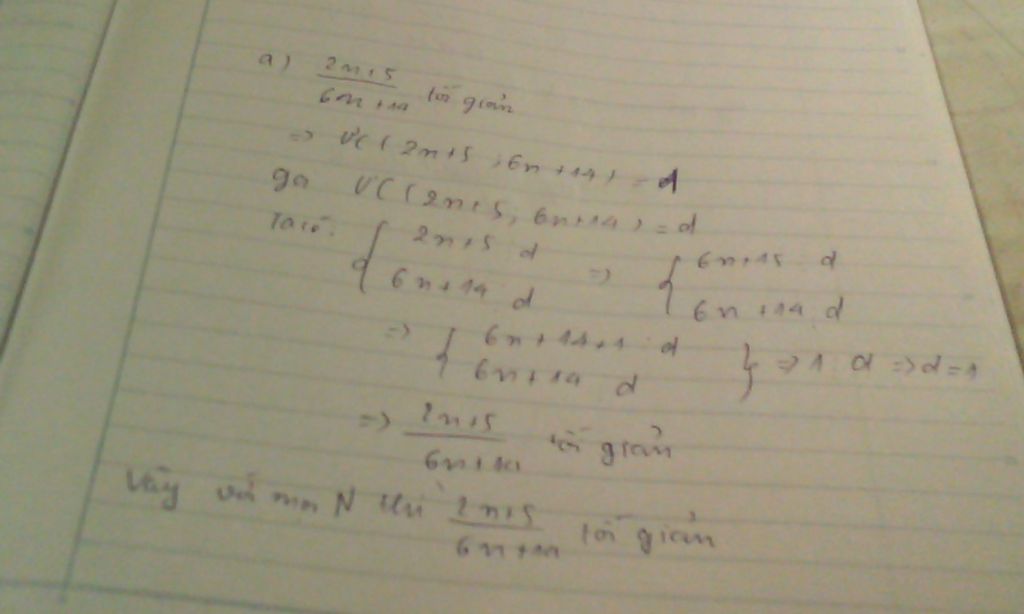 a) 2n+5 / 6n+14 tối giản
=> ƯC(2n+5, 6n+14) = 1
gọi ƯC(2n+5, 6n+14) = d
Ta có: { 2n+5 ⋮ d ; 6n+14 ⋮ d => { 6n+15 ⋮ d ; 6n+14 ⋮ d
=> { 6n+14+1 ⋮ d ; 6n+14 ⋮ d } => 1 ⋮ d => d=1
=> 2n+5 / 6n+14 tối giản
Vậy với mọi N thì 2n+5 / 6n+14 tối giản